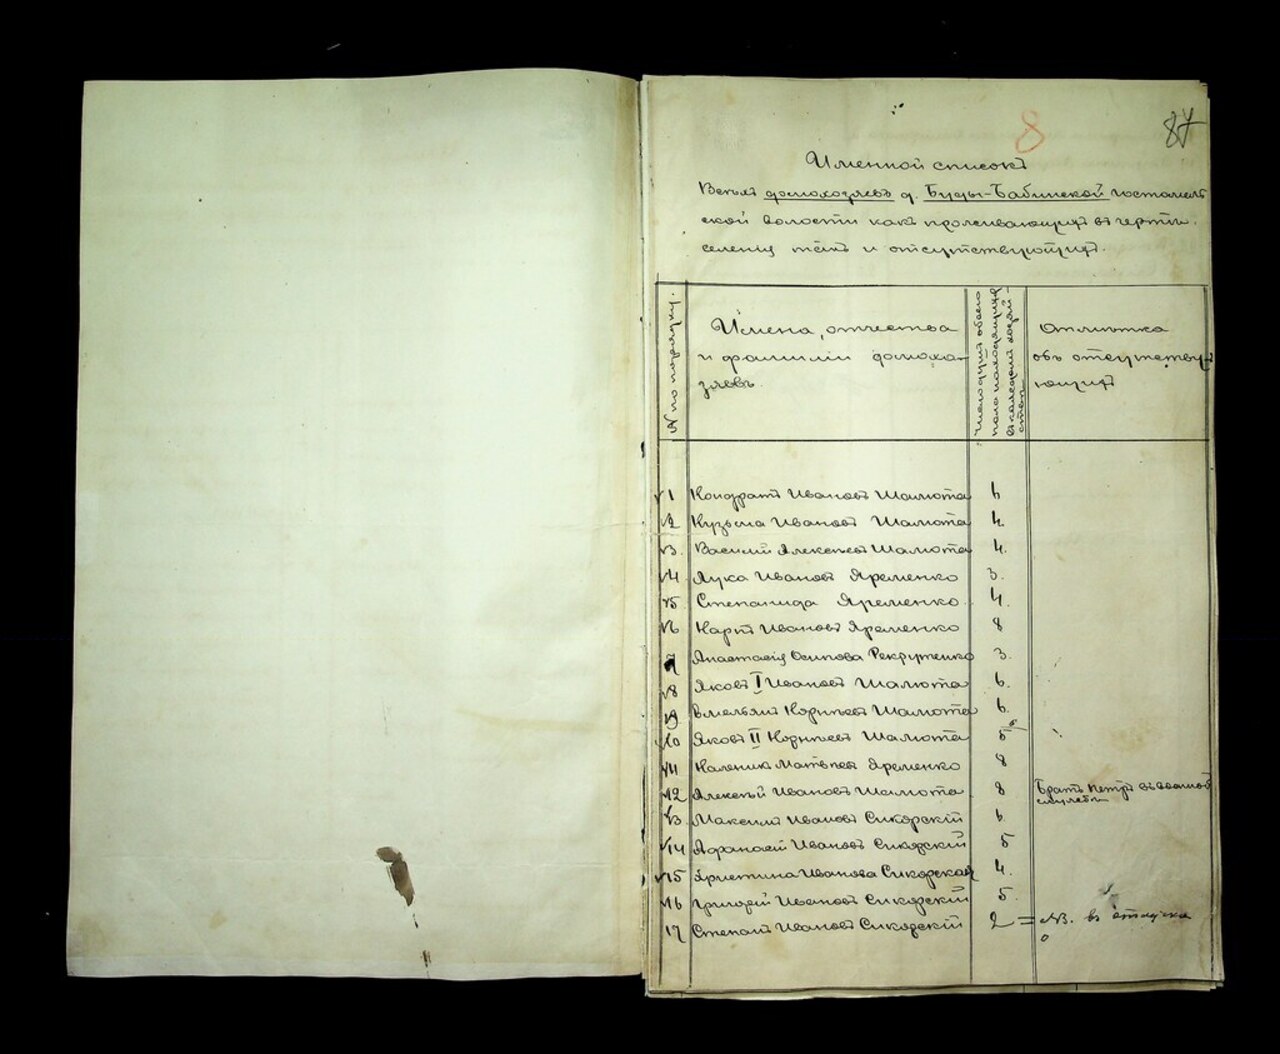 8
87
Именной списокъ
Всѣхъ домохозяевъ д. Буды-Бабинской Гостомель
ской волости какъ проживающихъ въ чертѣ
селенія такъ и отсутствующихъ.
№ по порядку.
Имена, отчества
и фамиліи домохо-
зяевъ.
Число душъ обоего
пола находящихся
въ каждомъ хозяй-
ствѣ
Отмѣтка
объ отсутству-
ющихъ
1 Кондратъ Ивановъ Шалюта 6
2 Кузьма Ивановъ Шалюта 4.
3. Василій Алексѣевъ Шалюта 4.
4 Лука Ивановъ Яременко 3.
5 Степанида Яременко 4.
6 Карпъ Ивановъ Яременко 8
7 Анастасія Осипова Рекрутенко 3.
8 Яковъ I Ивановъ Шалюта 6.
9 Емельянъ Корнѣевъ Шалюта 6.
10 Яковъ II Корнѣевъ Шалюта 5
11 Каленикъ Матвѣевъ Яременко 8
12 Алексѣй Ивановъ Шалюта 8 Братъ Петръ въ военной
службѣ
13. Максимъ Ивановъ Сикорскій 6.
14 Афанасій Ивановъ Сикорскій 5
15 Христина Иванова Сикорская 4.
16 Григорій Ивановъ Сикорскій 5.
17 Степанъ Ивановъ Сикорскій 2 = NB. въ отлучке